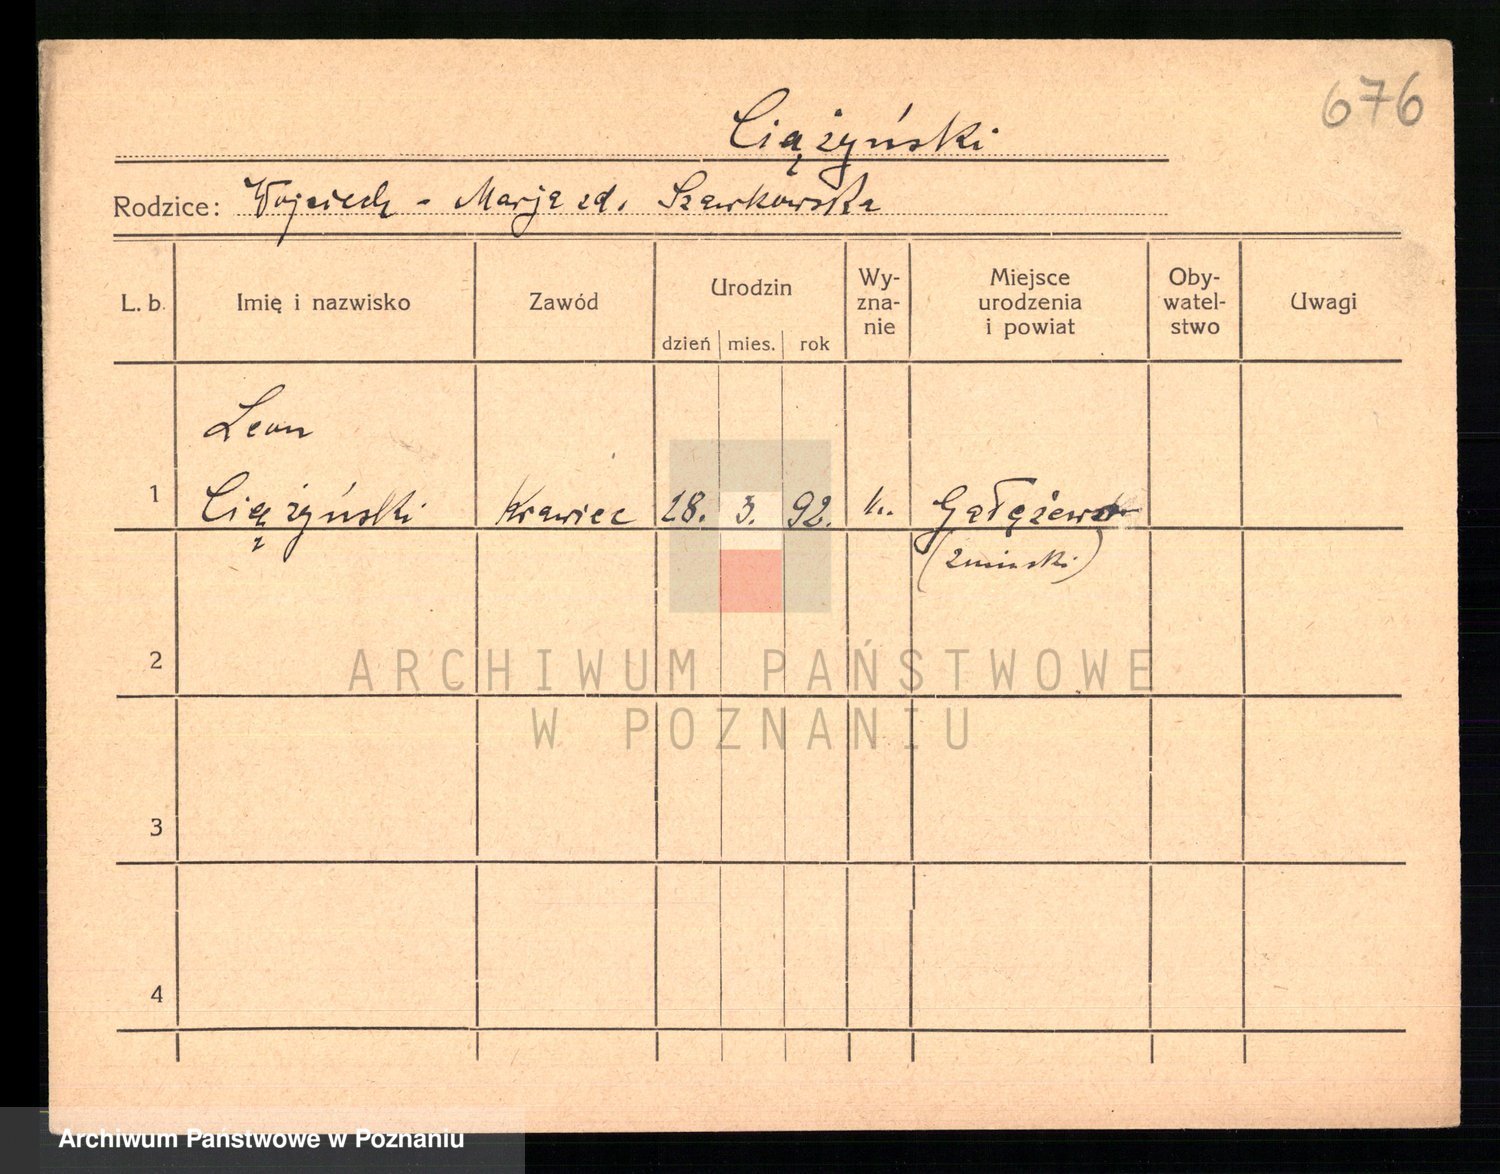 676
Ciążyński
Rodzice: Wojciech - Marja zd. Szarkowska
L. b. Imię i nazwisko Zawód Urodzin dzień mies. rok Wy-zna-nie Miejsce urodzenia i powiat Oby-watel-stwo Uwagi
Leon
1 Ciążyński Krawiec 28. 3. 92. k.
(żniński)
2
ARCHIWUM PAŃSTWOWE
W POZNANIU
3
4
Archiwum Państwowe w Poznaniu